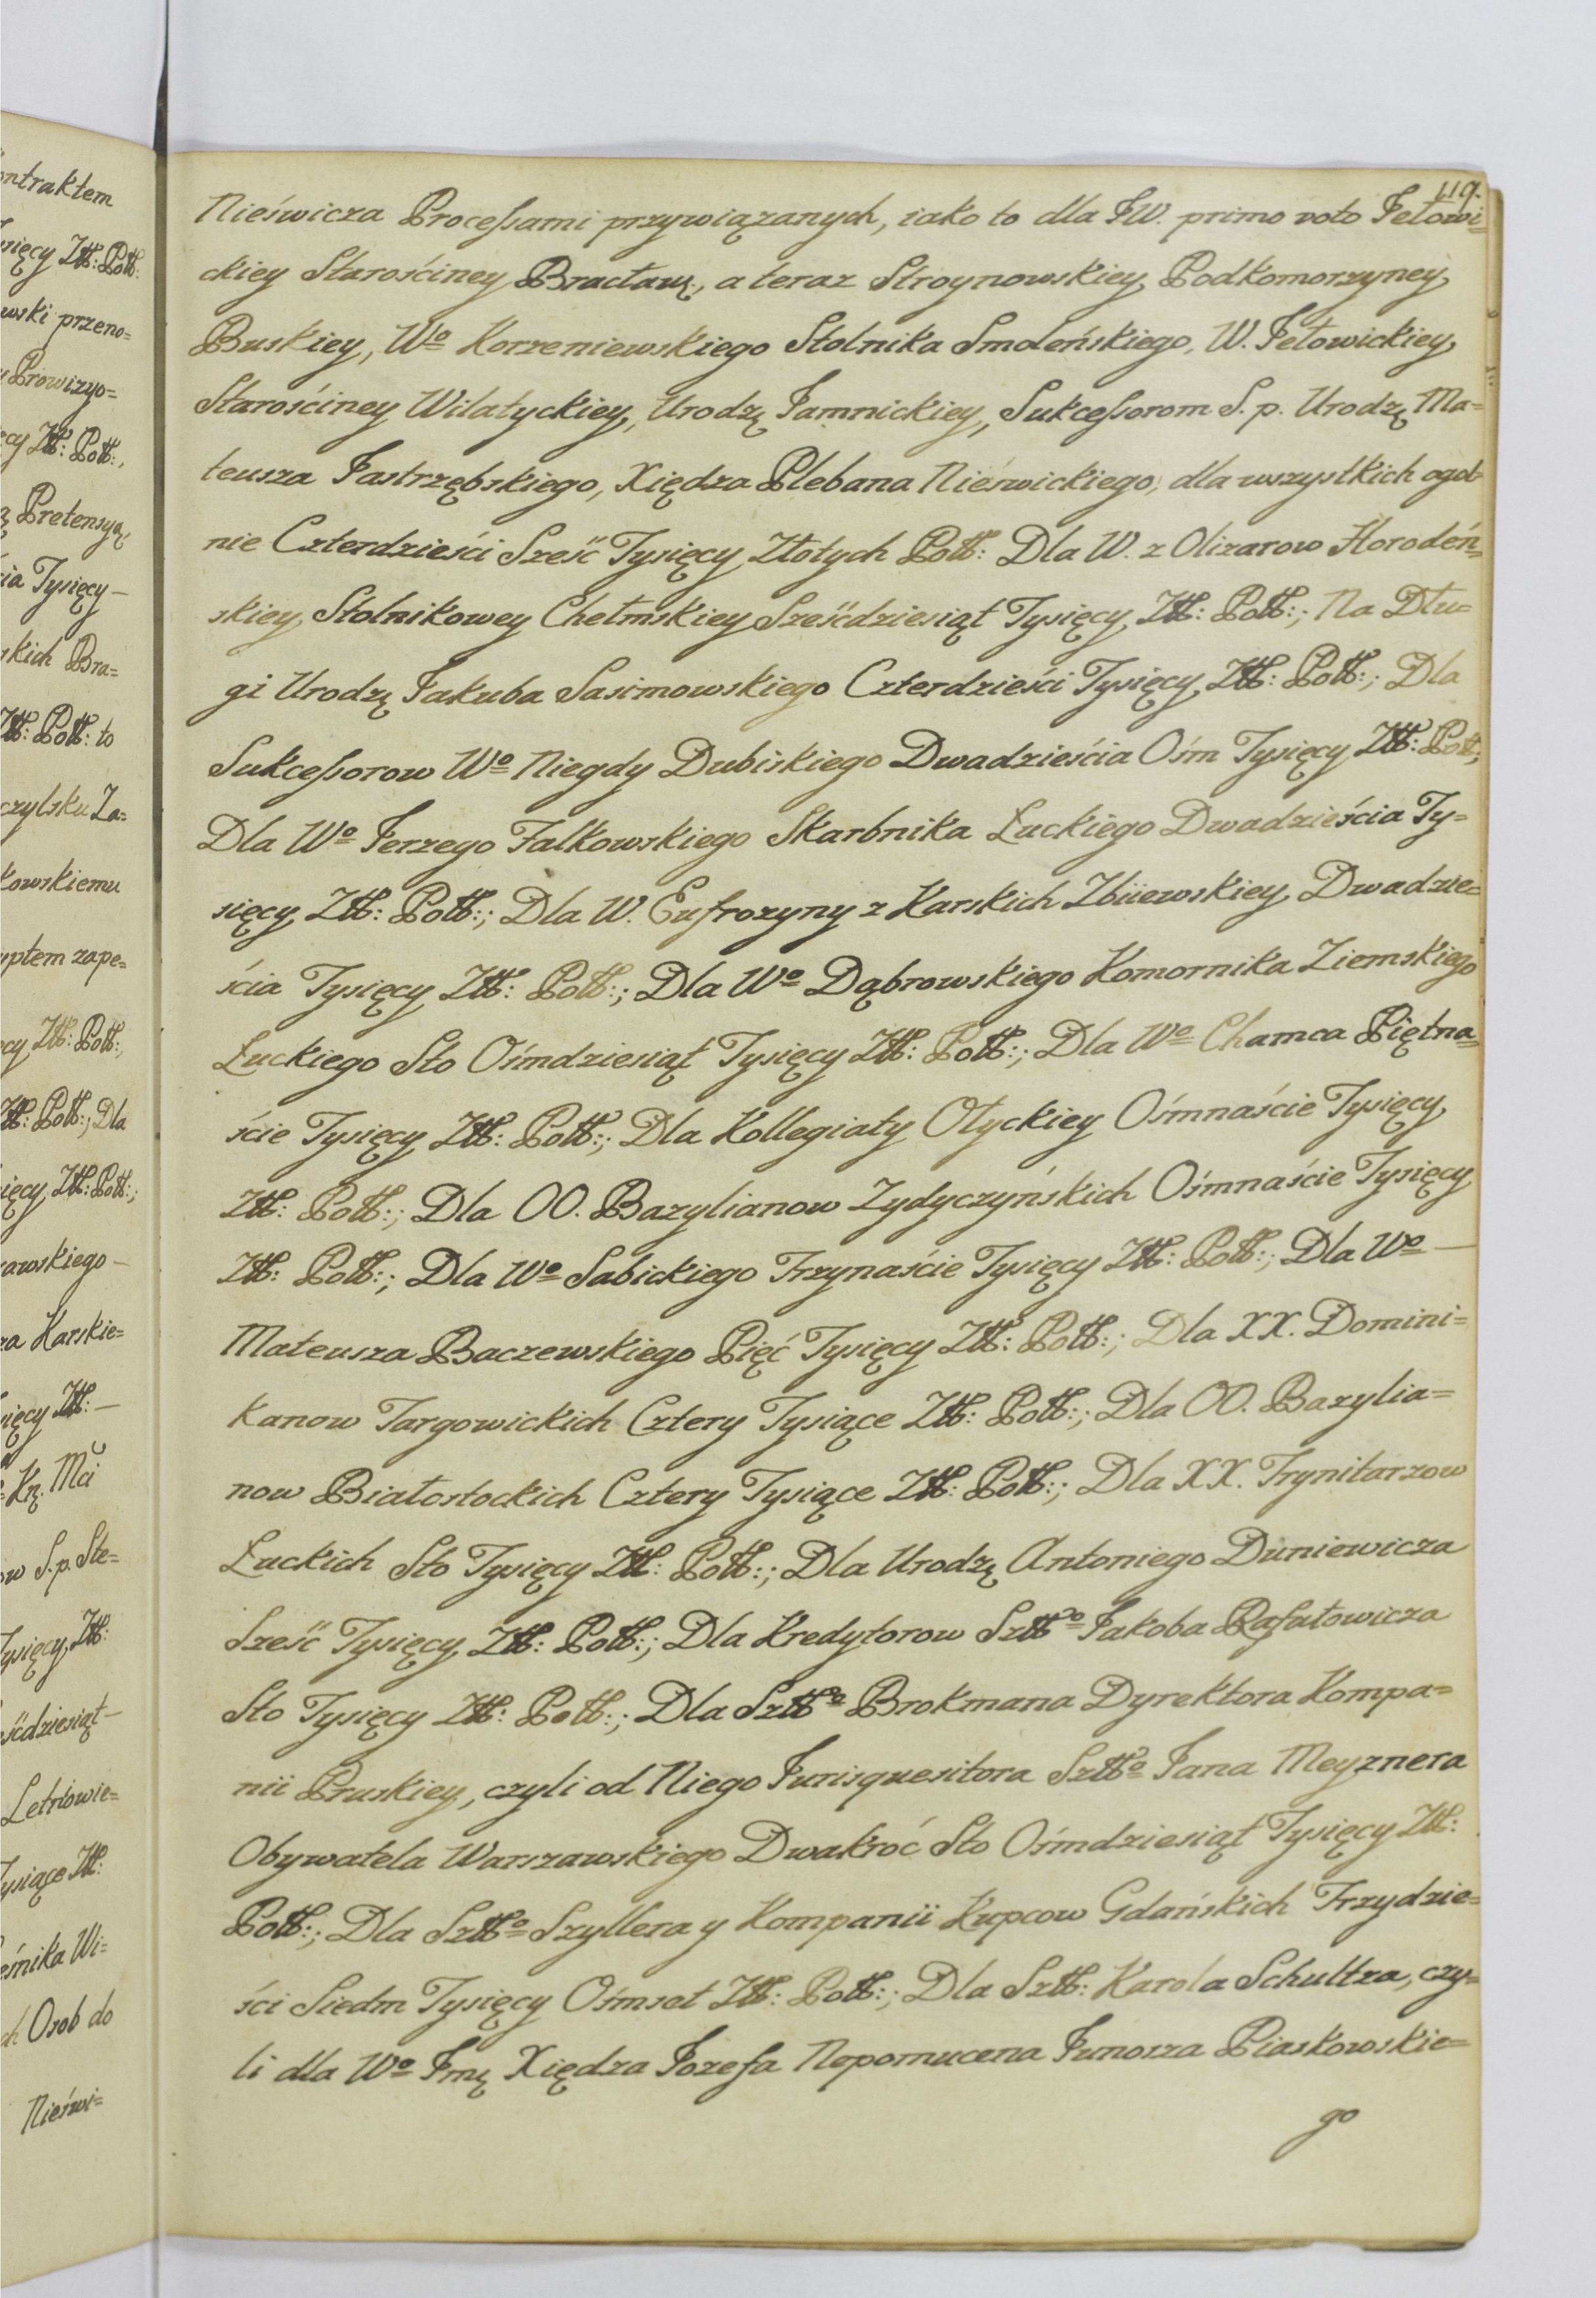 ontraktem
ysięcy Ztt: Pott:
wski przeno=
Prowizyo=
ęcy Ztt: Pott:,
ą Pretensyą
cia Tysięcy —
skich Bra=
Ztt: Pott: to
czylsku Za=
kowskiemu
yptem zape=
ęcy Ztt: Pott:,
Ztt: Pott:; Dla
sięcy Ztt: Pott:;
rawskiego —
za Karskie=
sięcy Ztt: —
Kę. Mci
ow S. p. Ste=
Tysięcy Ztt:
eśćdziesiąt —
Letniowie=
Tysiące Ztt:
eśnika Wi=
ch Osob do
Nieświ=
119.
Nieświcza Processami przywiązanych, iako to dla JW. primo voto Jełowi=
ckiey Starościney Bracławę, a teraz Stroynowskiey Podkomorzyney
Buskiey, Wo Korzeniewskiego Stolnika Smoleńskiego, W. Jełowickiey
Starościney Wilatyckiey, Urodzę Jamnickiey, Sukcessorom S. p. Urodzę Ma=
teusza Jastrzębskiego, Xiędza Plebana Nieświckiego, dla wszystkich ogol=
nie Czterdzieści Sześć Tysięcy Złotych Pott: Dla W. z Olizarow Horodeń=
skiey Stolnikowey Chełmskiey Sześćdziesiąt Tysięcy Ztt: Pott:; Na Dłu=
gi Urodzę Jakuba Sasimowskiego Czterdzieści Tysięcy Ztt: Pott:; Dla
Sukcessorow Wo Niegdy Dubiskiego Dwadzieścia Ośm Tysięcy Ztt: Pott:;
Dla Wo Jerzego Falkowskiego Skarbnika Łuckiego Dwadzieścia Ty=
sięcy Ztt: Pott:; Dla W. Eufrozyny z Karskich Zbiiewskiey Dwadzie=
ścia Tysięcy Ztt: Pott:; Dla Wo Dąbrowskiego Komornika Ziemskiego
Łuckiego Sto Ośmdziesiąt Tysięcy Ztt: Pott:; Dla Wo Chamca Piętna=
ście Tysięcy Ztt: Pott:; Dla Kollegiaty Ołyckiey Ośmnaście Tysięcy
Ztt: Pott:; Dla OO. Bazylianow Zydyczyńskich Ośmnaście Tysięcy
Ztt: Pott:; Dla Wo Sabickiego Trzynaście Tysięcy Ztt: Pott:; Dla Wo —
Mateusza Baczewskiego Pięć Tysięcy Ztt: Pott:; Dla XX. Domini=
kanow Targowickich Cztery Tysiące Ztt: Pott:; Dla OO. Bazylia=
now Białostockich Cztery Tysiące Ztt: Pott:; Dla XX. Trynitarzow
Łuckich Sto Tysięcy Ztt: Pott:; Dla Urodzę Antoniego Duniewicza
Sześć Tysięcy Ztt: Pott:; Dla Kredytorow Sztto Jakoba Rafałowicza
Sto Tysięcy Ztt: Pott:; Dla Sztto Brokmana Dyrektora Kompa=
nii Pruskiey, czyli od Niego Jurisquesitora Sztto Jana Meyznera
Obywatela Warszawskiego Dwakroć Sto Ośmdziesiąt Tysięcy Ztt:
Pott:; Dla Sztto Szyllera y Kompanii Kupcow Gdańskich Trzydzie=
ści Siedm Tysięcy Ośmset Ztt: Pott:; Dla Sztt: Karola Schultza, czy=
li dla Wo Jmę Xiędza Jozefa Nepomucena Junosza Piaskowskie=
go